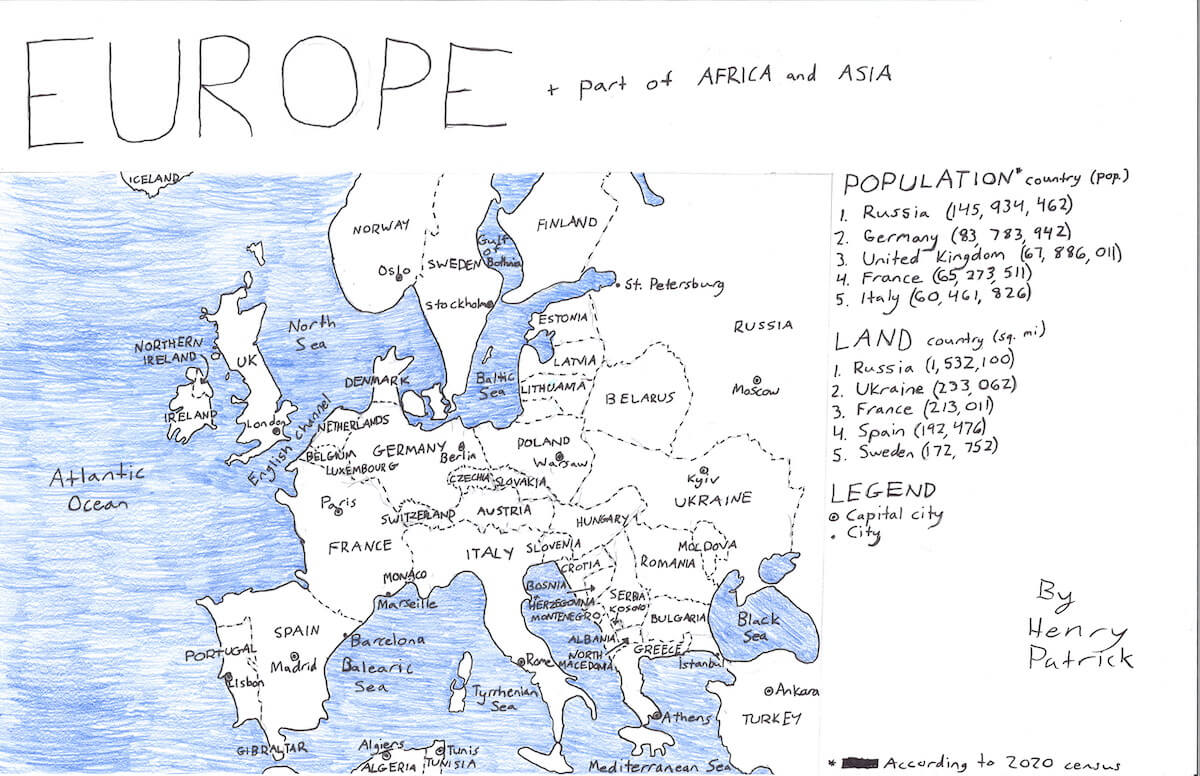 EUROPE + part of AFRICA and ASIA
POPULATION* country (pop.)
1. Russia (145, 934, 462)
2. Germany (83, 783, 942)
3. United Kingdom (67, 886, 011)
4. France (65, 273, 511)
5. Italy (60, 461, 826)
LAND country (sq. mi)
1. Russia (1,532,100)
2. Ukraine (233, 062)
3. France (213, 011)
4. Spain (192, 476)
5. Sweden (172, 752)
LEGEND
Capital city
City
By
Henry
Patrick
* According to 2020 census
ICELAND
NORWAY
Oslo
SWEDEN
Stockholm
Gulf
of
Bothnia
FINLAND
St. Petersburg
RUSSIA
Moscow
ESTONIA
LATVIA
LITHUAMIA
BELARUS
North
Sea
Baltic
Sea
NORTHERN
IRELAND
UK
IRELAND
London
English channel
DENMARK
NETHERLANDS
BELGIUM
LUXEMBOURG
GERMANY
Berlin
POLAND
Warsaw
CZECHIA
SLOVAKIA
Kyiv
UKRAINE
Atlantic
Ocean
Paris
FRANCE
SWITZERLAND
AUSTRIA
HUNGARY
MOLDOVA
ITALY
SLOVENIA
CROTIA
ROMANIA
MONACO
Marseille
BOSNIA
HERZEGOVINA
MONTENEGRO
SERBIA
Kosolo
BULGARIA
Black
Sea
ALBANIA
NORTH
MACEDONIA
GREECE
Istanbul
SPAIN
Madrid
Barcelona
PORTUGAL
Lisbon
Balearic
Sea
Rome
Tyrrhenian
Sea
Athens
Ankara
TURKEY
GIBRALTAR
Algiers
ALGERIA
Tunis
TUNISIA
Mediterranean Sea